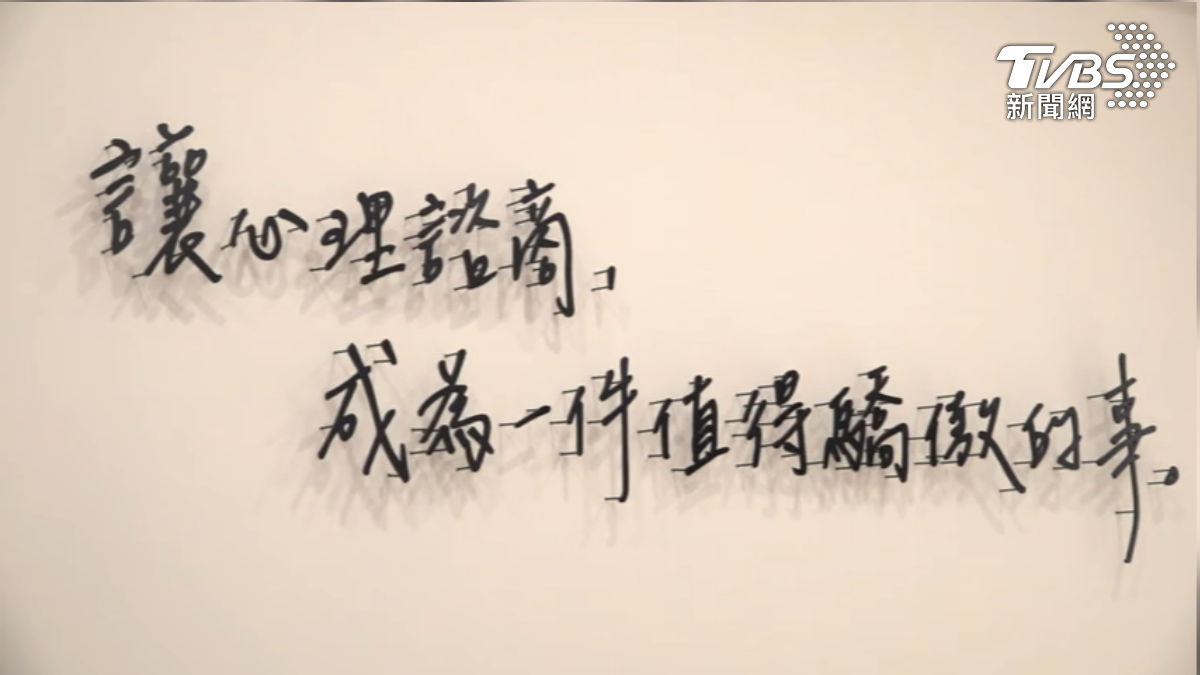 TVBS
新聞網
讓心理諮商,
成為一件值得驕傲的事。